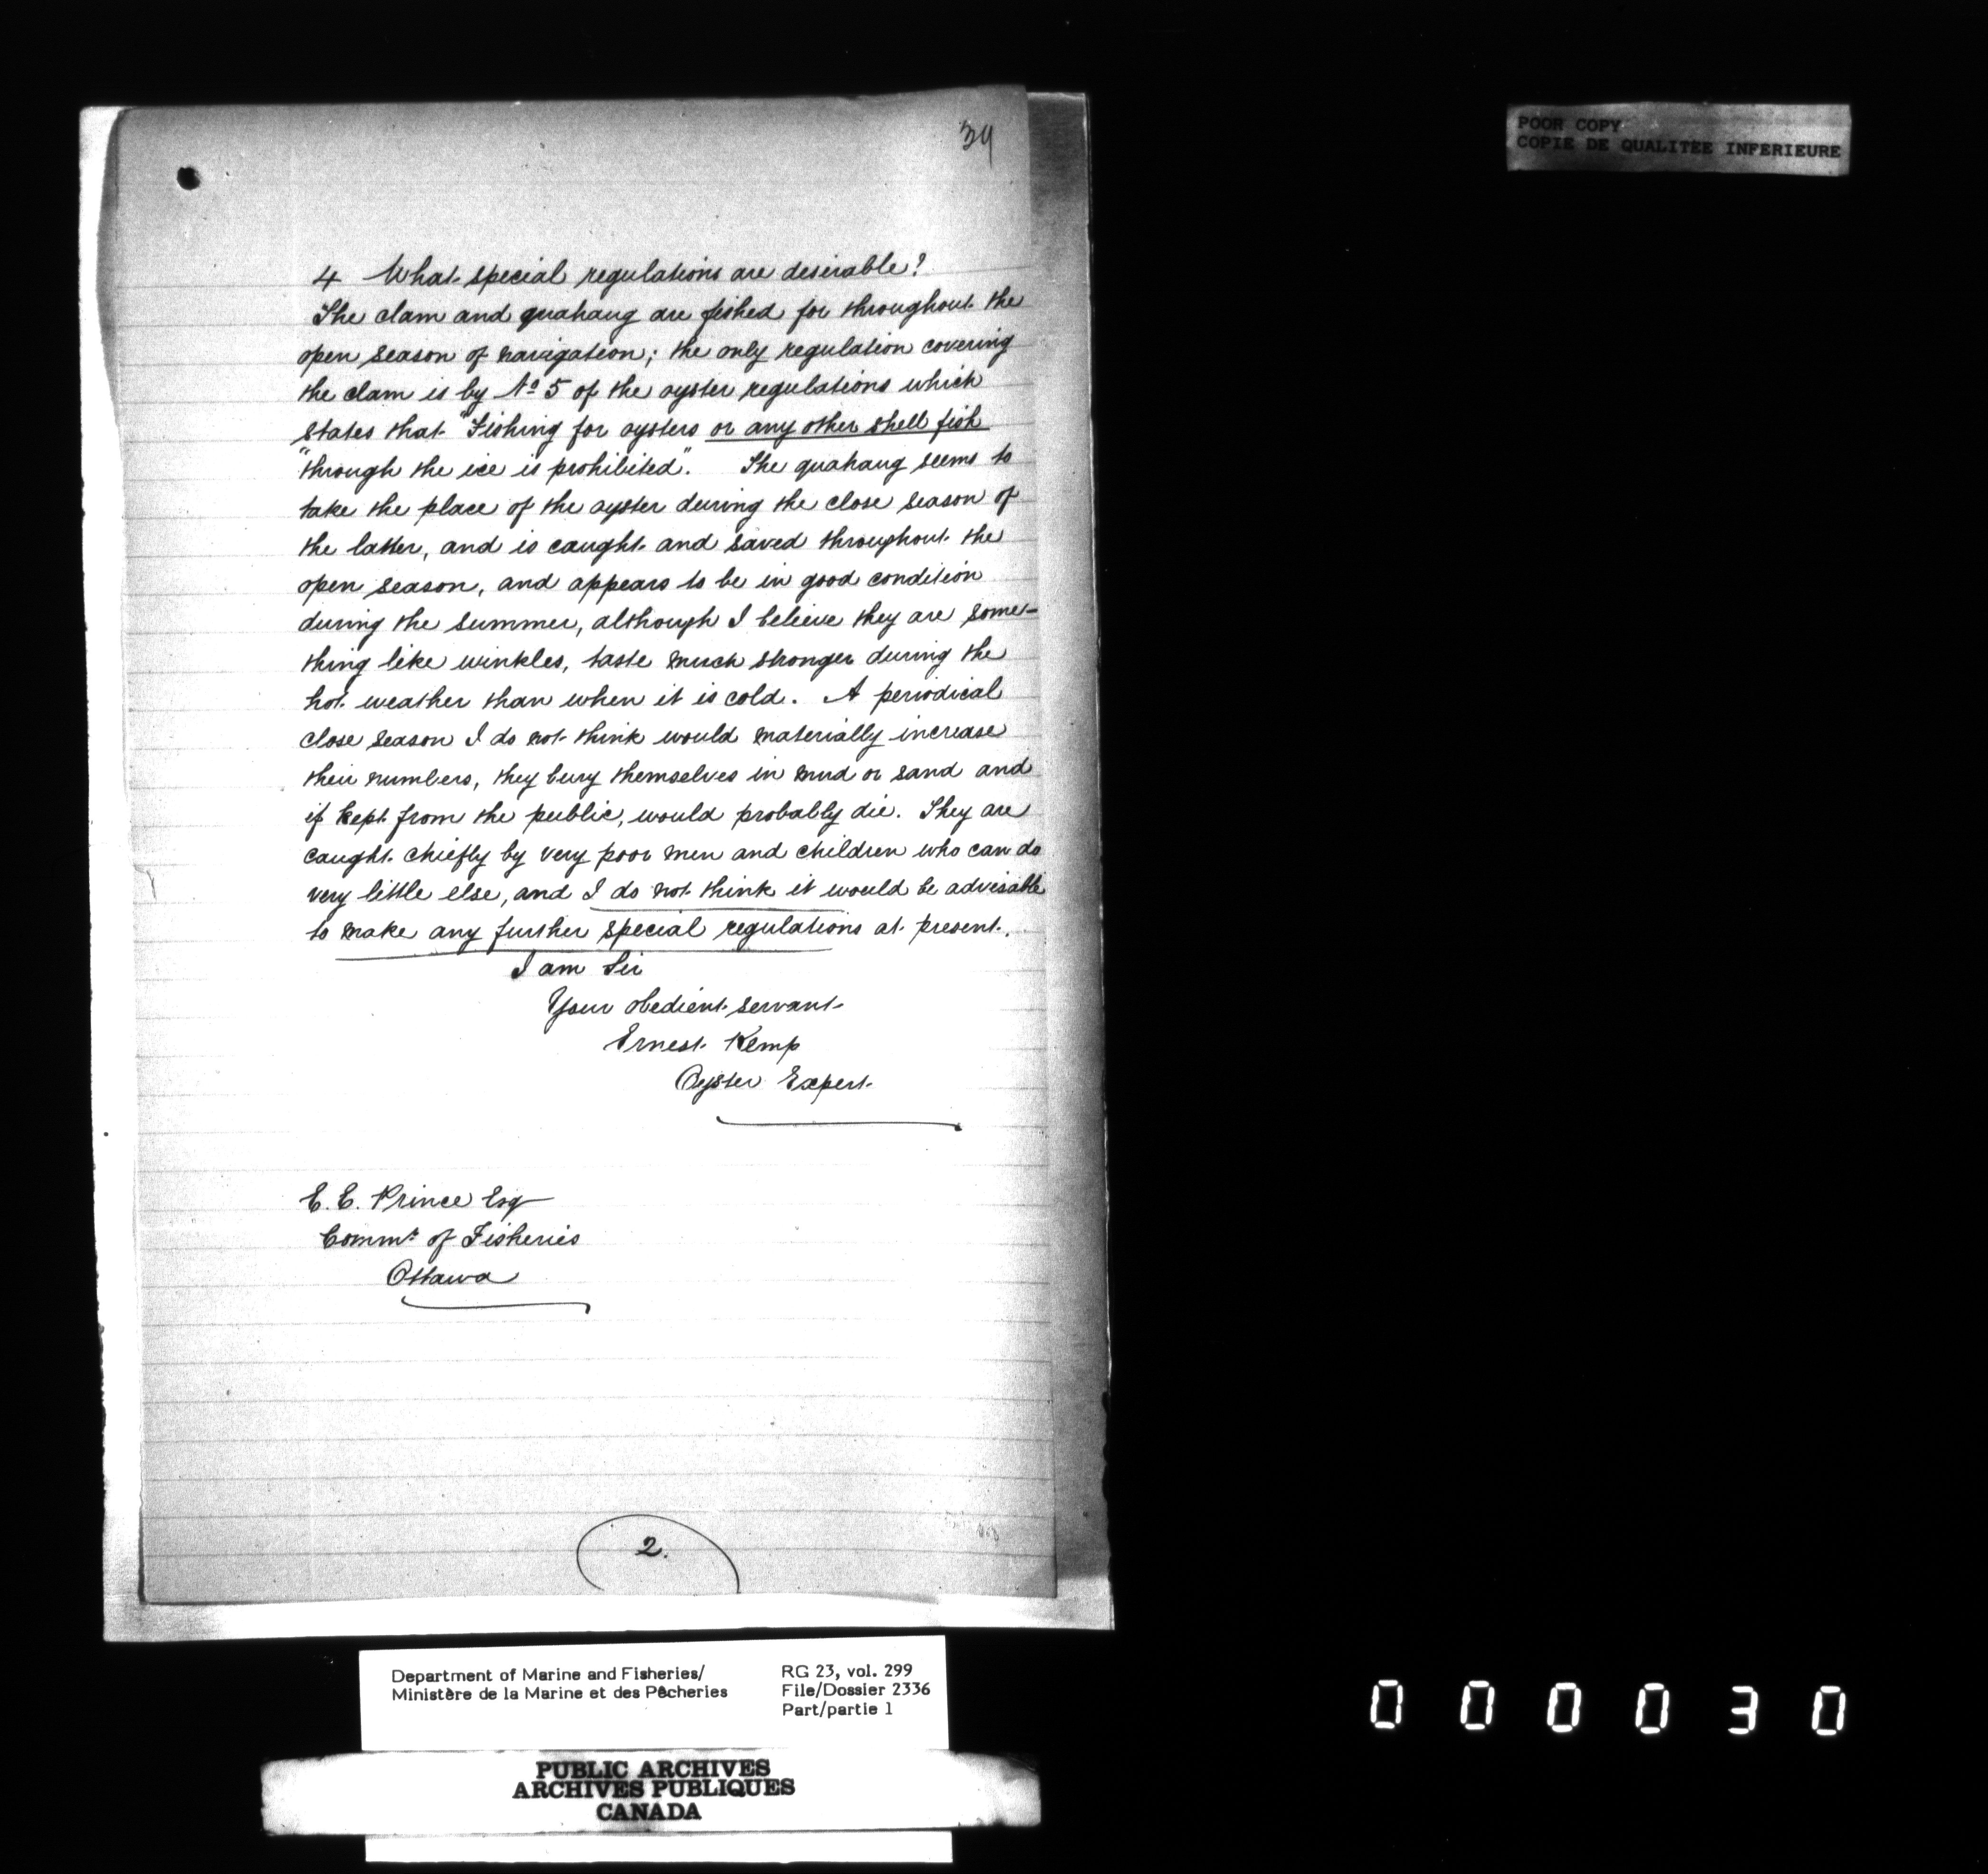 34
POOR COPY
COPIE DE QUALITEE INFERIEURE
4 What special regulations are desirable?
The clam and quahaug are fished for throughout the
open season of navigation; the only regulation covering
the clam is by No 5 of the oyster regulations which
states that "Fishing for oysters or any other shell fish
"through the ice is prohibited". The quahaug seems to
take the place of the oyster during the close season of
the latter, and is caught and saved throughout the
open season, and appears to be in good condition
during the summer, although I believe they are some-
thing like winkles, taste much stronger during the
hot weather than when it is cold. A periodical
close season I do not think would materially increase
their numbers, they bury themselves in mud or sand and
if kept from the public, would probably die. They are
caught chiefly by very poor men and children who can do
very little else, and I do not think it would be advisable
to make any further special regulations at present.
I am Sir
Your obedient servant
Ernest Kemp
Oyster Expert
E. E. Prince Esq
Commr of Fisheries
Ottawa
2.
Department of Marine and Fisheries/
Ministère de la Marine et des Pêcheries
RG 23, vol. 299
File/Dossier 2336
Part/partie 1
PUBLIC ARCHIVES
ARCHIVES PUBLIQUES
CANADA
000030